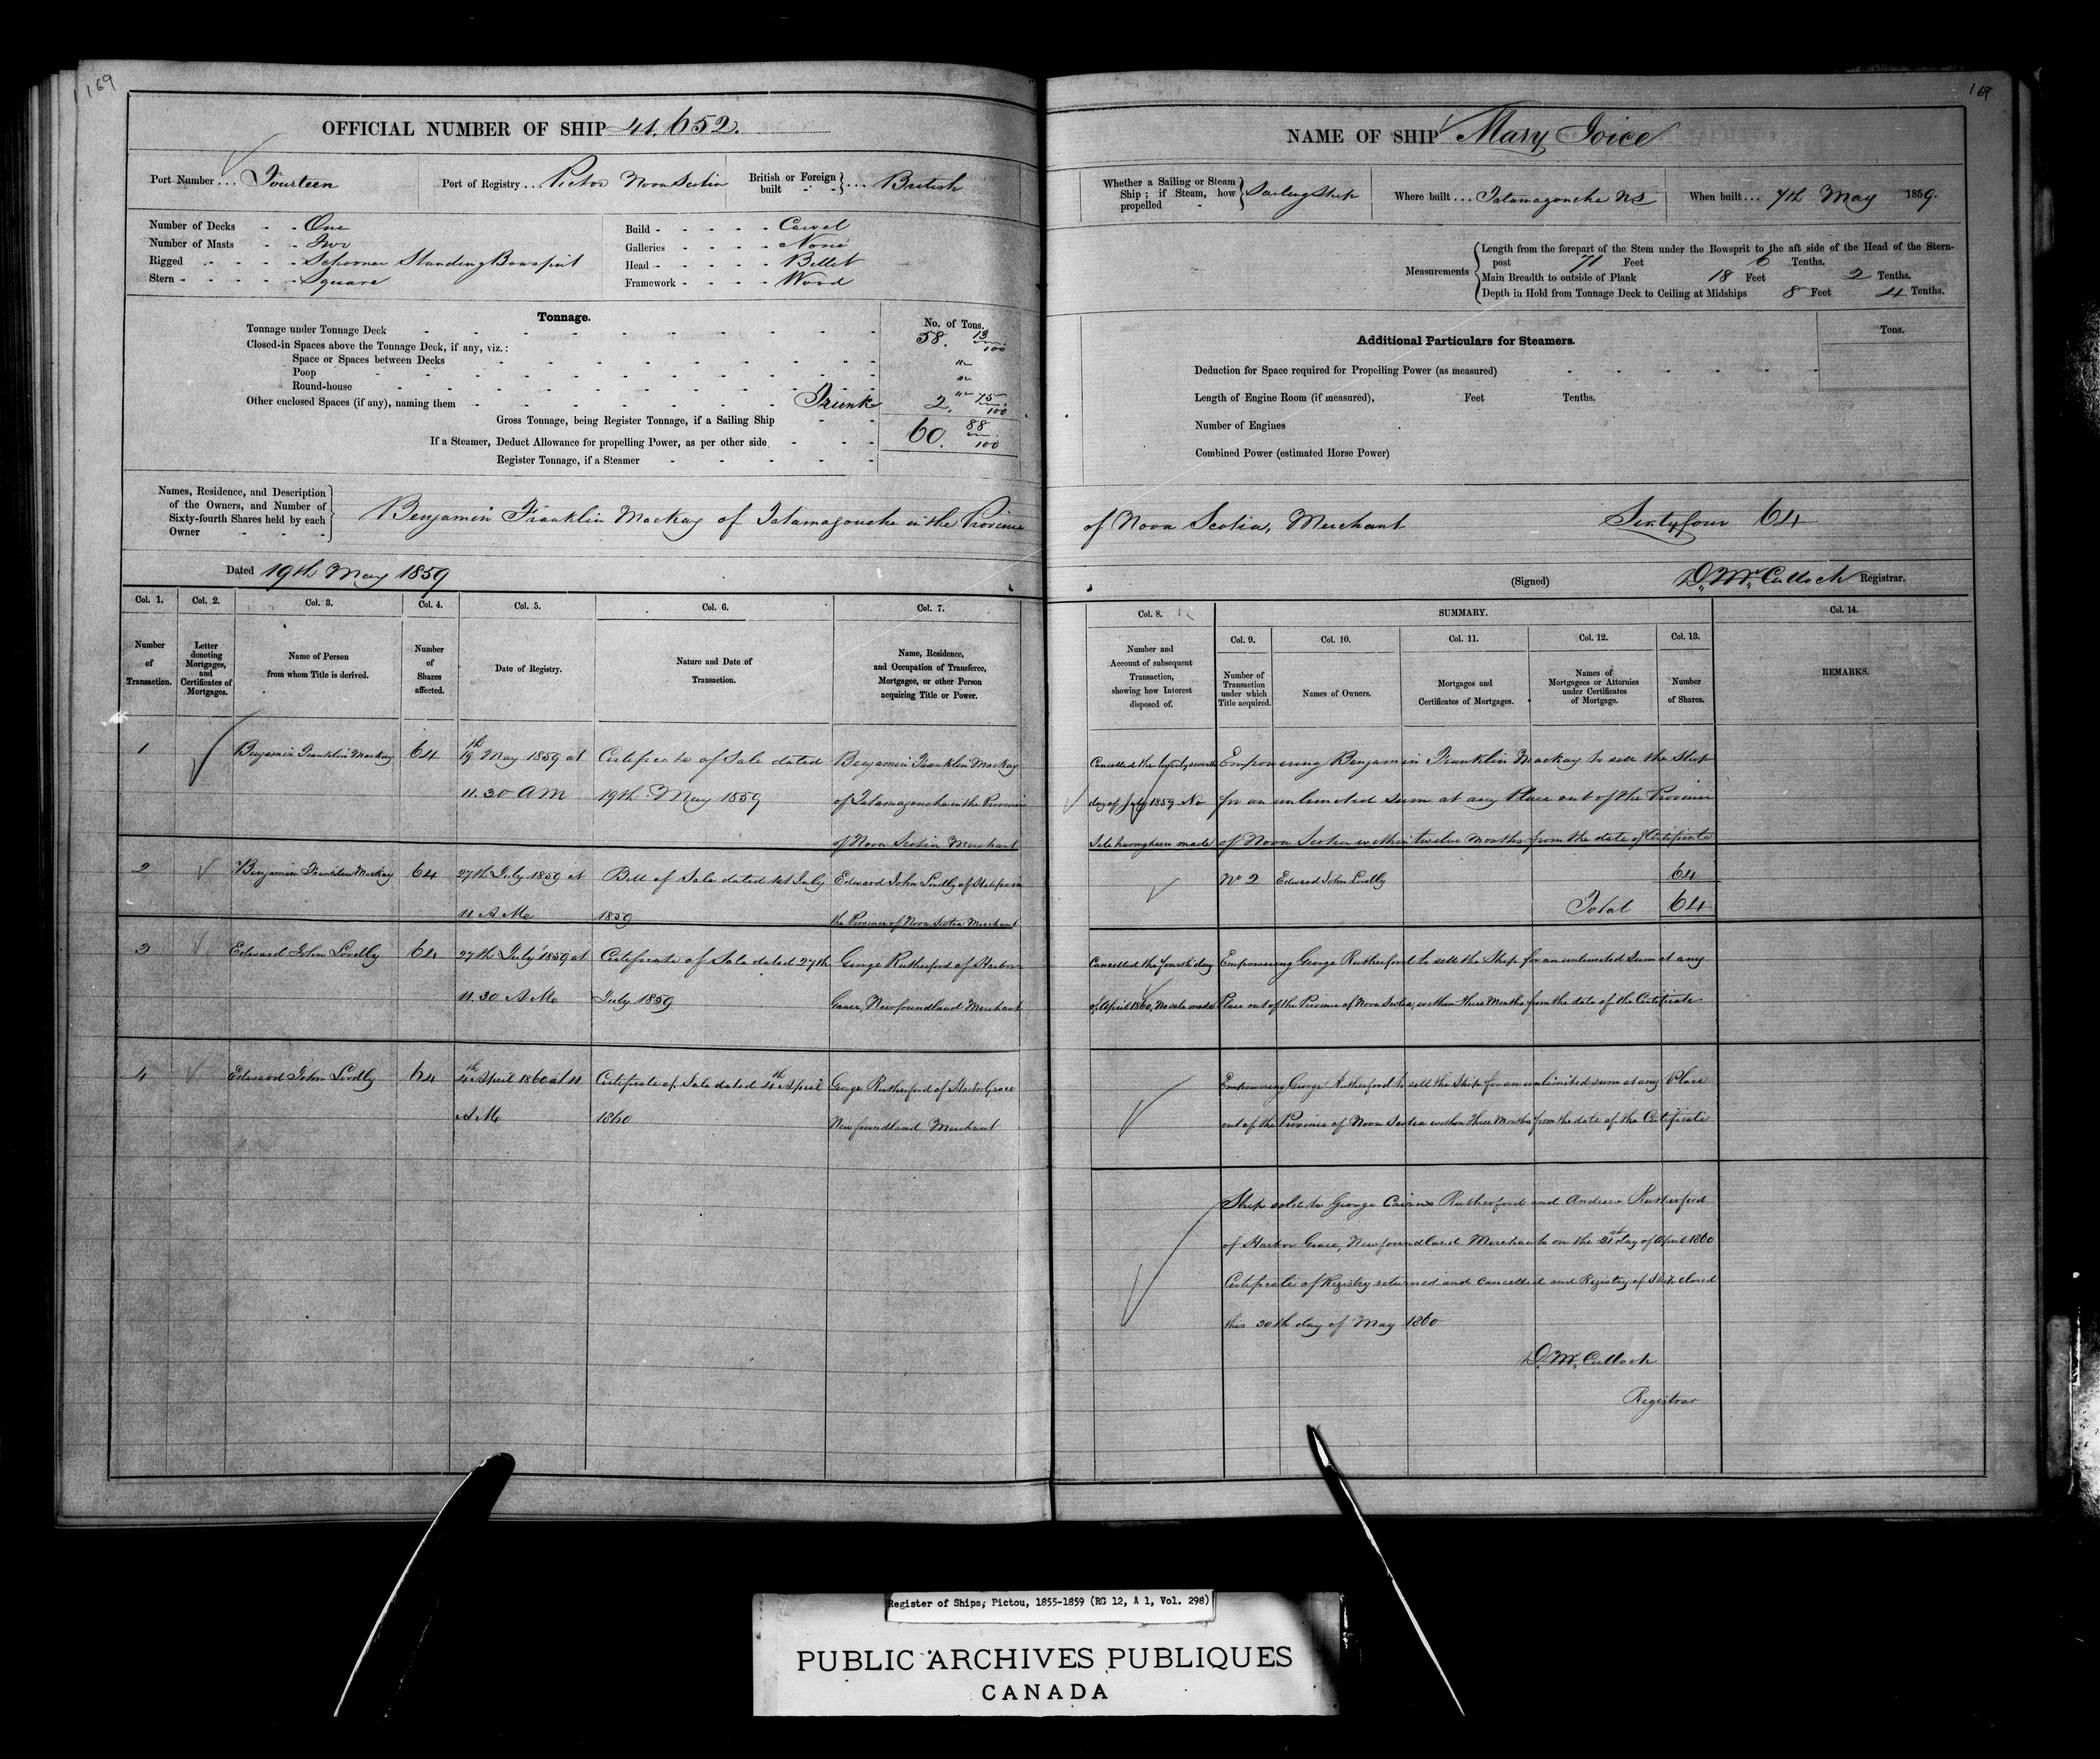 169
OFFICIAL NUMBER OF SHIP 41.652.
Port Number ... Fourteen
Port of Registry ... Pictou Nova Scotia
British or Foreign built } ... British
Number of Decks - - One
Number of Masts - - Two
Rigged - - - Schooner Standing Bowsprit
Stern - - - - Square
Build - - - - - Carvel
Galleries - - - - None
Head - - - - - Billet
Framework - - - - Wood
Tonnage.
No. of Tons.
Tonnage under Tonnage Deck 58. 13/100
Closed-in Spaces above the Tonnage Deck, if any, viz.:
Space or Spaces between Decks "
Poop "
Round-house "
Other enclosed Spaces (if any), naming them Trunk 2. 75/100
Gross Tonnage, being Register Tonnage, if a Sailing Ship 60. 88/100
If a Steamer, Deduct Allowance for propelling Power, as per other side
Register Tonnage, if a Steamer
Names, Residence, and Description
of the Owners, and Number of
Sixty-fourth Shares held by each
Owner - - -
Benjamin Franklin Mackay of Tatamagouche in the Province
Dated 19th May 1859
Col. 1.
Col. 2.
Col. 3.
Col. 4.
Col. 5.
Col. 6.
Col. 7.
Number of Transaction.
Letter denoting Mortgages, and Certificates of Mortgages.
Name of Person from whom Title is derived.
Number of Shares affected.
Date of Registry.
Nature and Date of Transaction.
Name, Residence, and Occupation of Transferee, Mortgagee, or other Person acquiring Title or Power.
1 Benjamin Franklin Mackay 64 19th May 1859 at Certificate of Sale dated Benjamin Franklin Mackay
11.30 AM 19th May 1859 of Tatamagouche in the Province
of Nova Scotia Merchant
2 Benjamin Franklin Mackay 64 27th July 1859 at Bill of Sale dated 1st July Edward John Lordly of Halifax in
11 AM 1859 the Province of Nova Scotia Merchant
3 Edward John Lordly 64 27th July 1859 at Certificate of Sale dated 27th George Rutherford of Harbor
11.30 AM July 1859 Grace, Newfoundland Merchant
4 Edward John Lordly 64 4th April 1860 at 11 Certificate of Sale dated 4th April George Rutherford of Harbor Grace
AM 1860 Newfoundland Merchant
169
NAME OF SHIP Mary Joice
Whether a Sailing or Steam Ship; if Steam, how propelled - } Sailing Ship
Where built ... Tatamagouche NS
When built ... 7th May 1859.
Measurements
Length from the forepart of the Stem under the Bowsprit to the aft side of the Head of the Stern-
post 71 Feet 6 Tenths.
Main Breadth to outside of Plank 18 Feet 2 Tenths.
Depth in Hold from Tonnage Deck to Ceiling at Midships 8 Feet 4 Tenths.
Additional Particulars for Steamers.
Tons.
Deduction for Space required for Propelling Power (as measured)
Length of Engine Room (if measured), Feet Tenths.
Number of Engines
Combined Power (estimated Horse Power)
of Nova Scotia, Merchant Sixtyfour 64
(Signed) D. McCulloch Registrar.
Col. 8.
SUMMARY.
Col. 14.
Col. 9.
Col. 10.
Col. 11.
Col. 12.
Col. 13.
Number and Account of subsequent Transaction, showing how Interest disposed of.
Number of Transaction under which Title acquired.
Names of Owners.
Mortgages and Certificates of Mortgages.
Names of Mortgagees or Attornies under Certificates of Mortgage.
Number of Shares.
REMARKS.
Cancelled the twenty seventh Empowering Benjamin Franklin Mackay to sell the Ship
day of July 1859 No for an unlimited sum at any Place out of the Province
Sale having been made of Nova Scotia within twelve Months from the date of Certificate
No 2 Edward John Lordly 64
Total 64
Cancelled the fourth day Empowering George Rutherford to sell the Ship for an unlimited sum at any
of April 1860, No sale made Place out of the Province of Nova Scotia, within Three Months from the date of the Certificate
Empowering George Rutherford to sell the Ship for an unlimited sum at any Place
out of the Province of Nova Scotia within Three Months from the date of the Certificate
Ship sold to George Cairns Rutherford and Andrew Rutherford
of Harbor Grace, Newfoundland Merchants on the 21st day of April 1860
Certificate of Registry returned and Cancelled and Registry of Ship closed
this 30th day of May 1860
D. McCulloch
Registrar
Register of Ships; Pictou, 1855-1859 (RG 12, A 1, Vol. 298)
PUBLIC ARCHIVES PUBLIQUES
CANADA